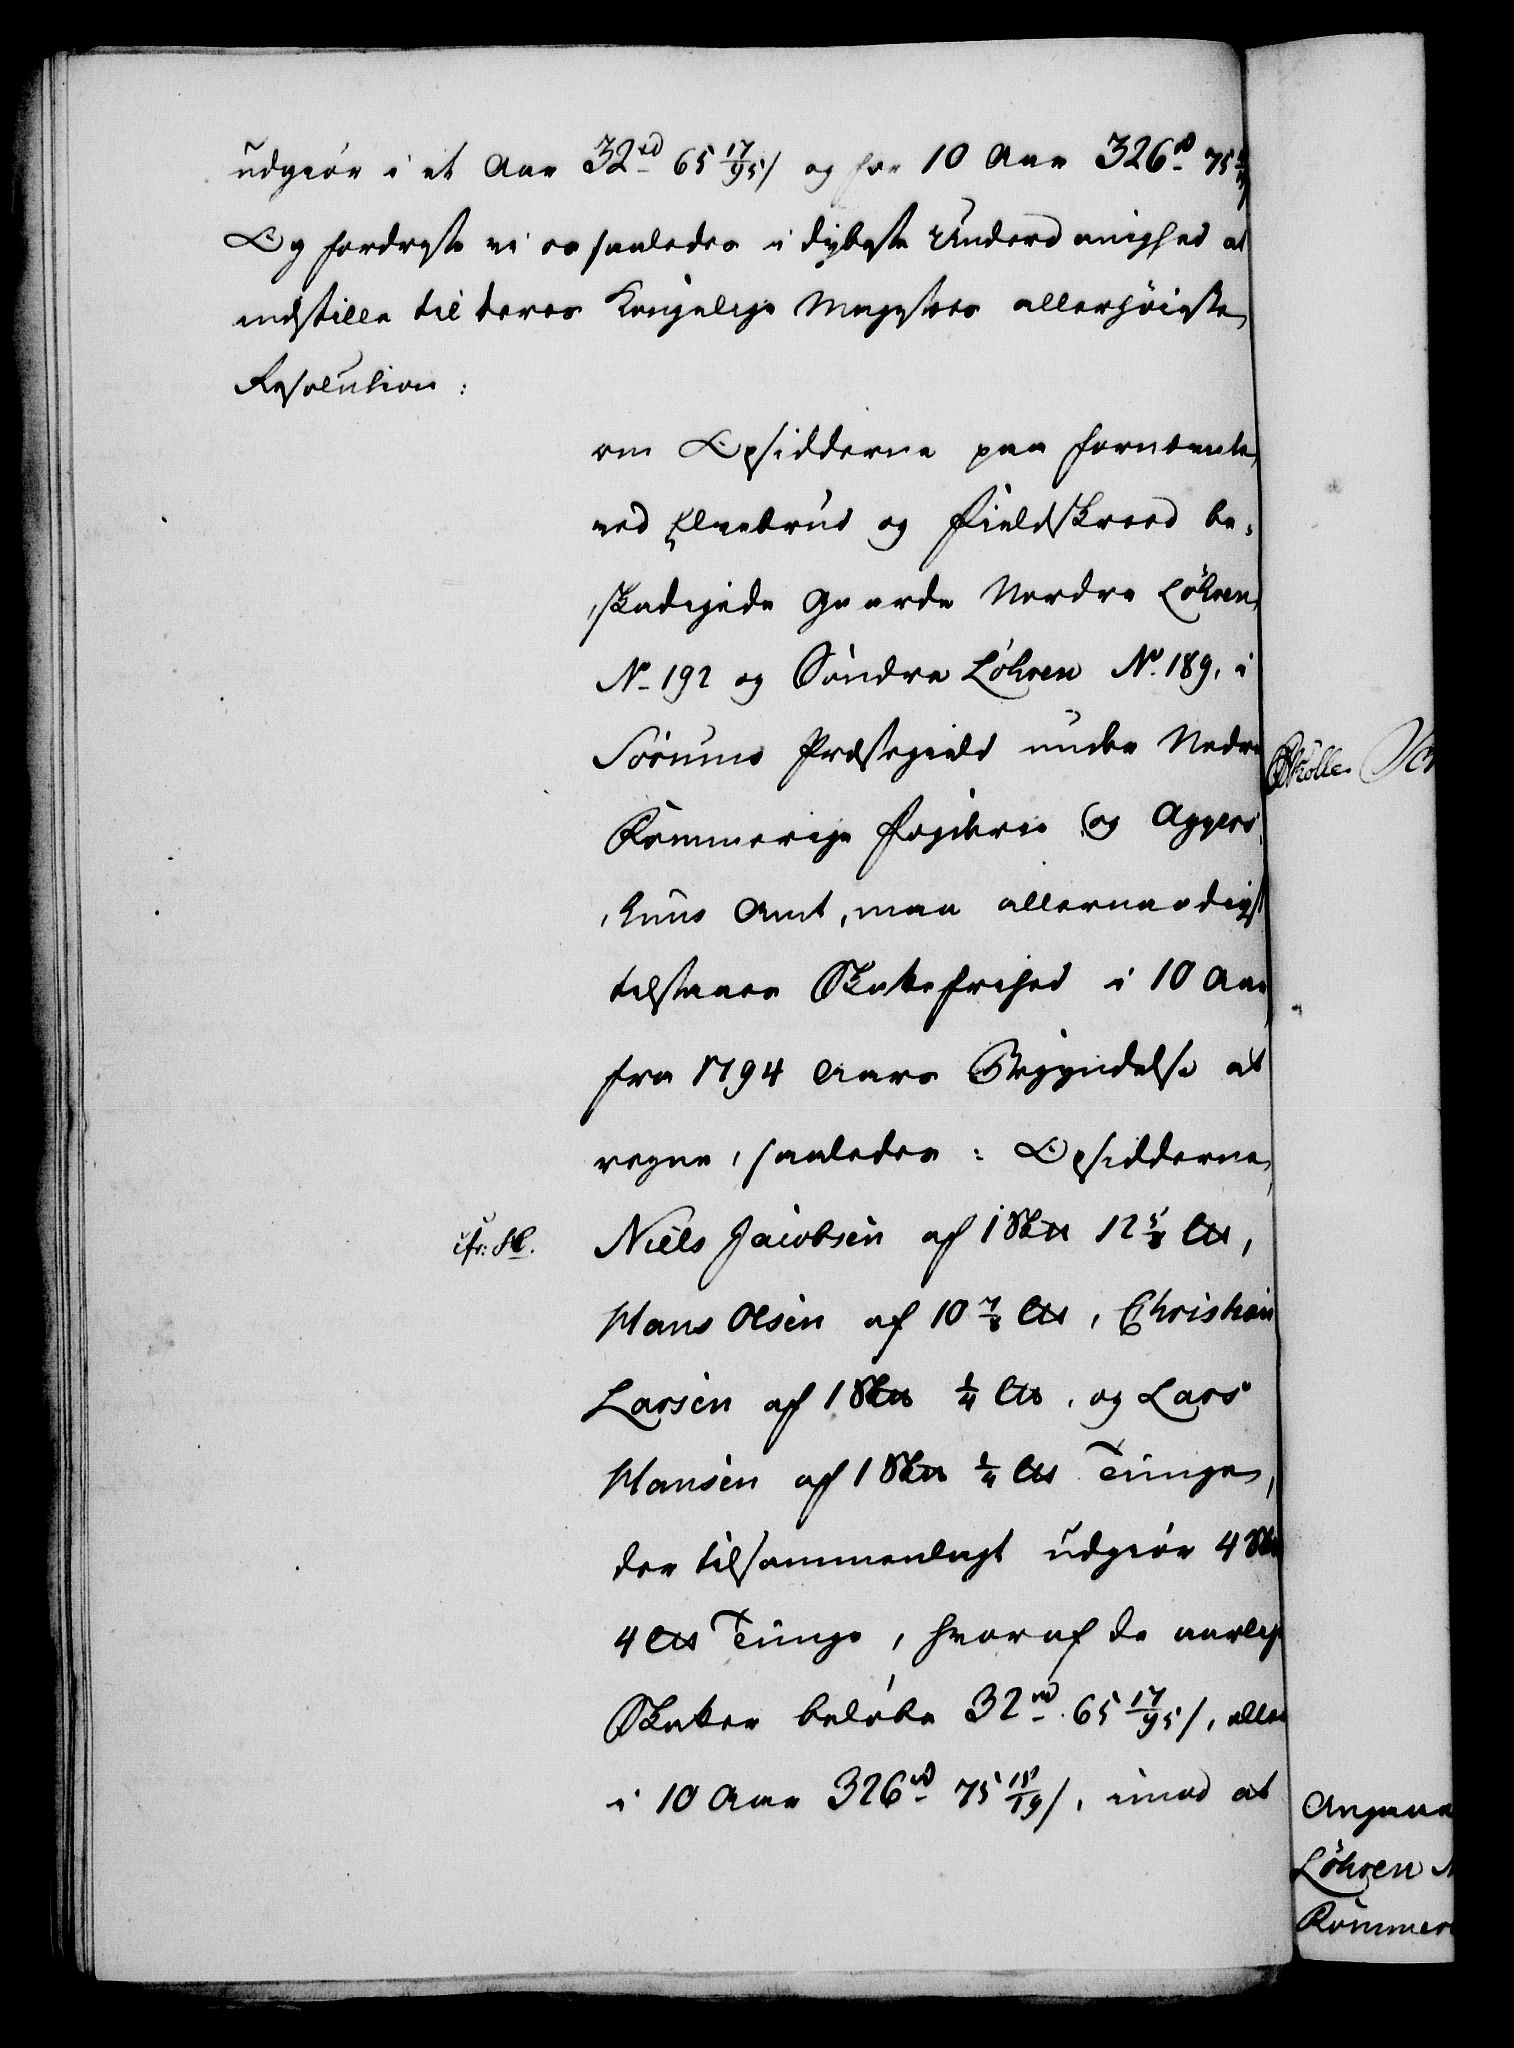 udgiör i et Aar 32rd 65 17/95 s og for 10 Aar 326rd 75
Og fordriste vi os saaledes i dybeste Underdanighed at
indstille til Deres Kongelige Majestets allerhöieste
Resolution:
om Opsidderne paa fornævnte
ved Elvebrud og Fieldskreed be-
skadigede Gaarde Nordre Löhren
No 192 og Söndre Löhren No. 189, i
Sörums Præstegield under Nedre
Rommerige Fogderie og Aggers-
huus Amt, maa allernaadigst
tilstaaes Skattefrihed i 10 Aar
fra 1794 Aars Begyndelse at
regne, saaledes: Opsidderne
cfr: Niels Jacobsen af 1 Skd 12 5/8 Lis,
Hans Olsen af 10 7/8 Lis, Christian
Larsen af 1 Skd 1/4 Lis, og Lars
Hansen af 1 Skd 1/4 Lis Tunge,
der tilsammenlagt udgiör 4 Skd
4 Lis Tunge, hvoraf de aarlige
Skatter belöbe 32rd 65 17/95 s, eller
i 10 Aar 326rd 75 15/19 s, imod at
Angaae
Löhren N
Rommer